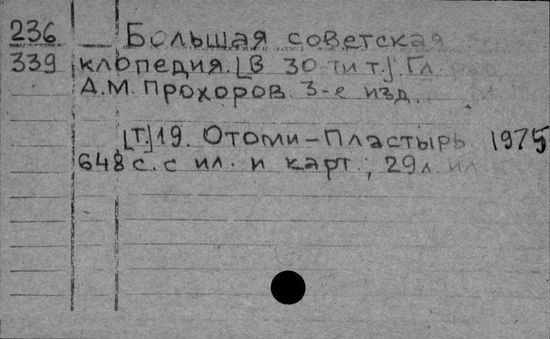 236 Большая советская
339 клопедия. [В 30-ти т.]. Гл.
А.М. Прохоров. 3-е изд.
[Т.] 19. Отоми-Пластырь. 1975
648 с. с ил. и карт.; 29 л. ил